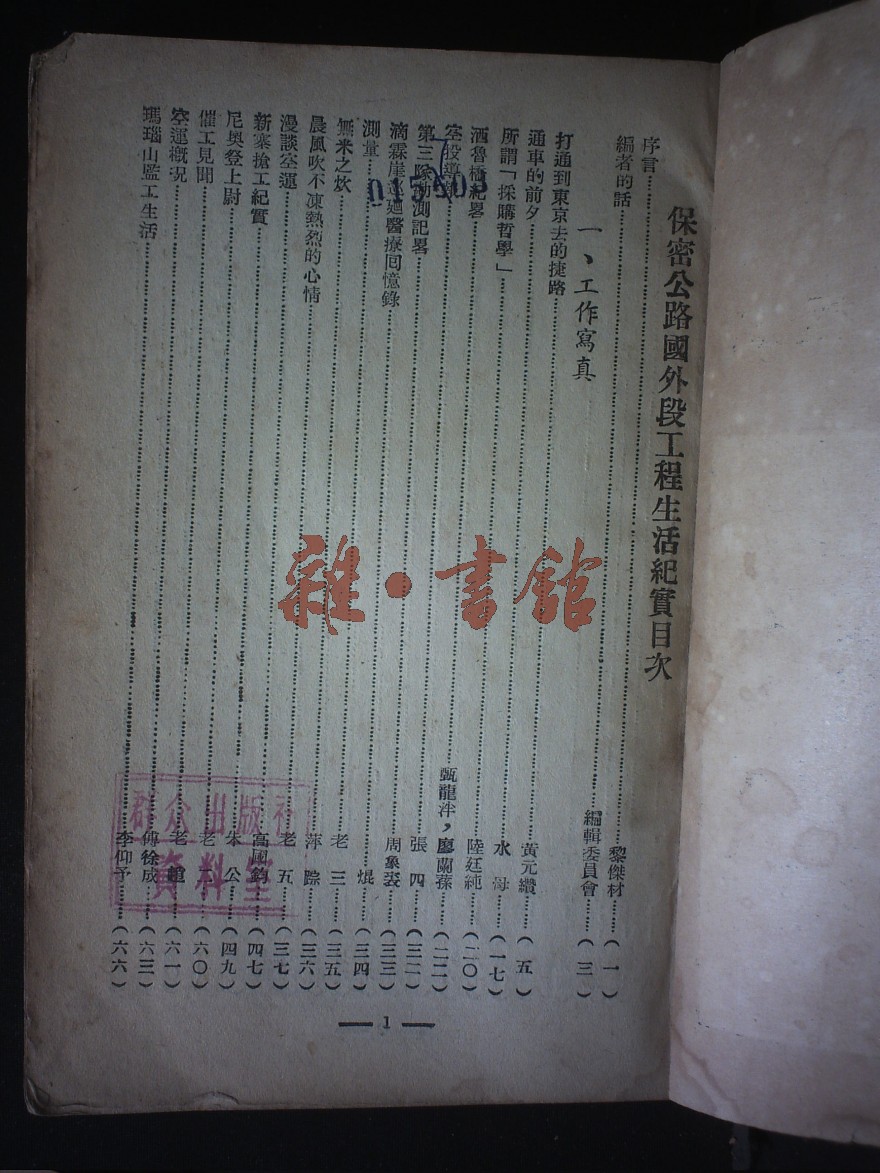 保密公路國外段工程生活紀實目次
序言……黎傑材……(一)
編者的話……編輯委員會……(三)
一、工作寫真
打通到東京去的捷路……黃元纘……(五)
通車的前夕……水母……(一七)
所謂「採購哲學」……陸廷純……(二〇)
洒魯橋紀畧……甄龍泮，廖蘭蓀……(二二)
空投……張四……(三二)
第三隊勘測記畧……周象裘……(三三)
滴霖崖巡廻醫療囘憶錄……焜……(三四)
測量……老三……(三五)
無米之炊……萍踪……(三六)
晨風吹不凍熱烈的心情……老五……(三七)
漫談空運……高國鈞……(四七)
新寨搶工紀實……公……(四九)
尼奧登上尉……老二……(六〇)
催工見聞……老……(六一)
空運概況……傅徐成……(六三)
瑪瑙山監工生活……李仰予……(六六)
— 1 —
雜·書館
群众出版社
資料室